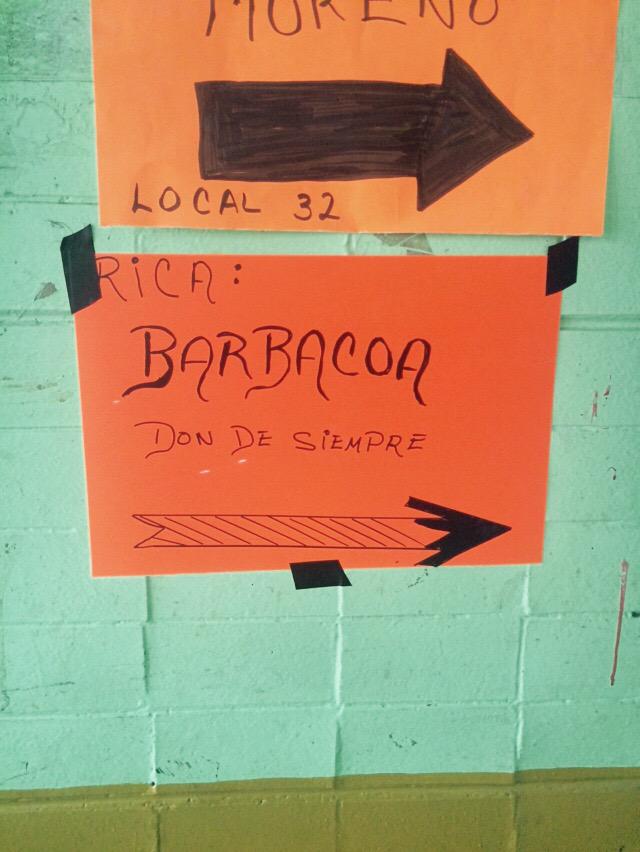 MORENO
LOCAL 32
RiCA:
BARBACOA
DON DE SiEMPRE